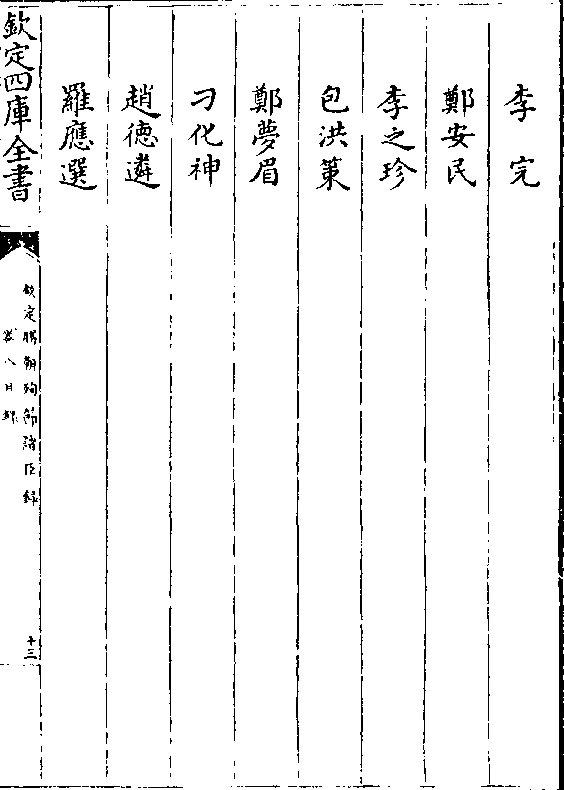 李完
鄭安民
李之珍
包洪策
鄭夢眉
刁化神
趙德遴
羅應選
欽定四庫全書
欽定勝朝殉節諸臣錄
卷八目錄
十三